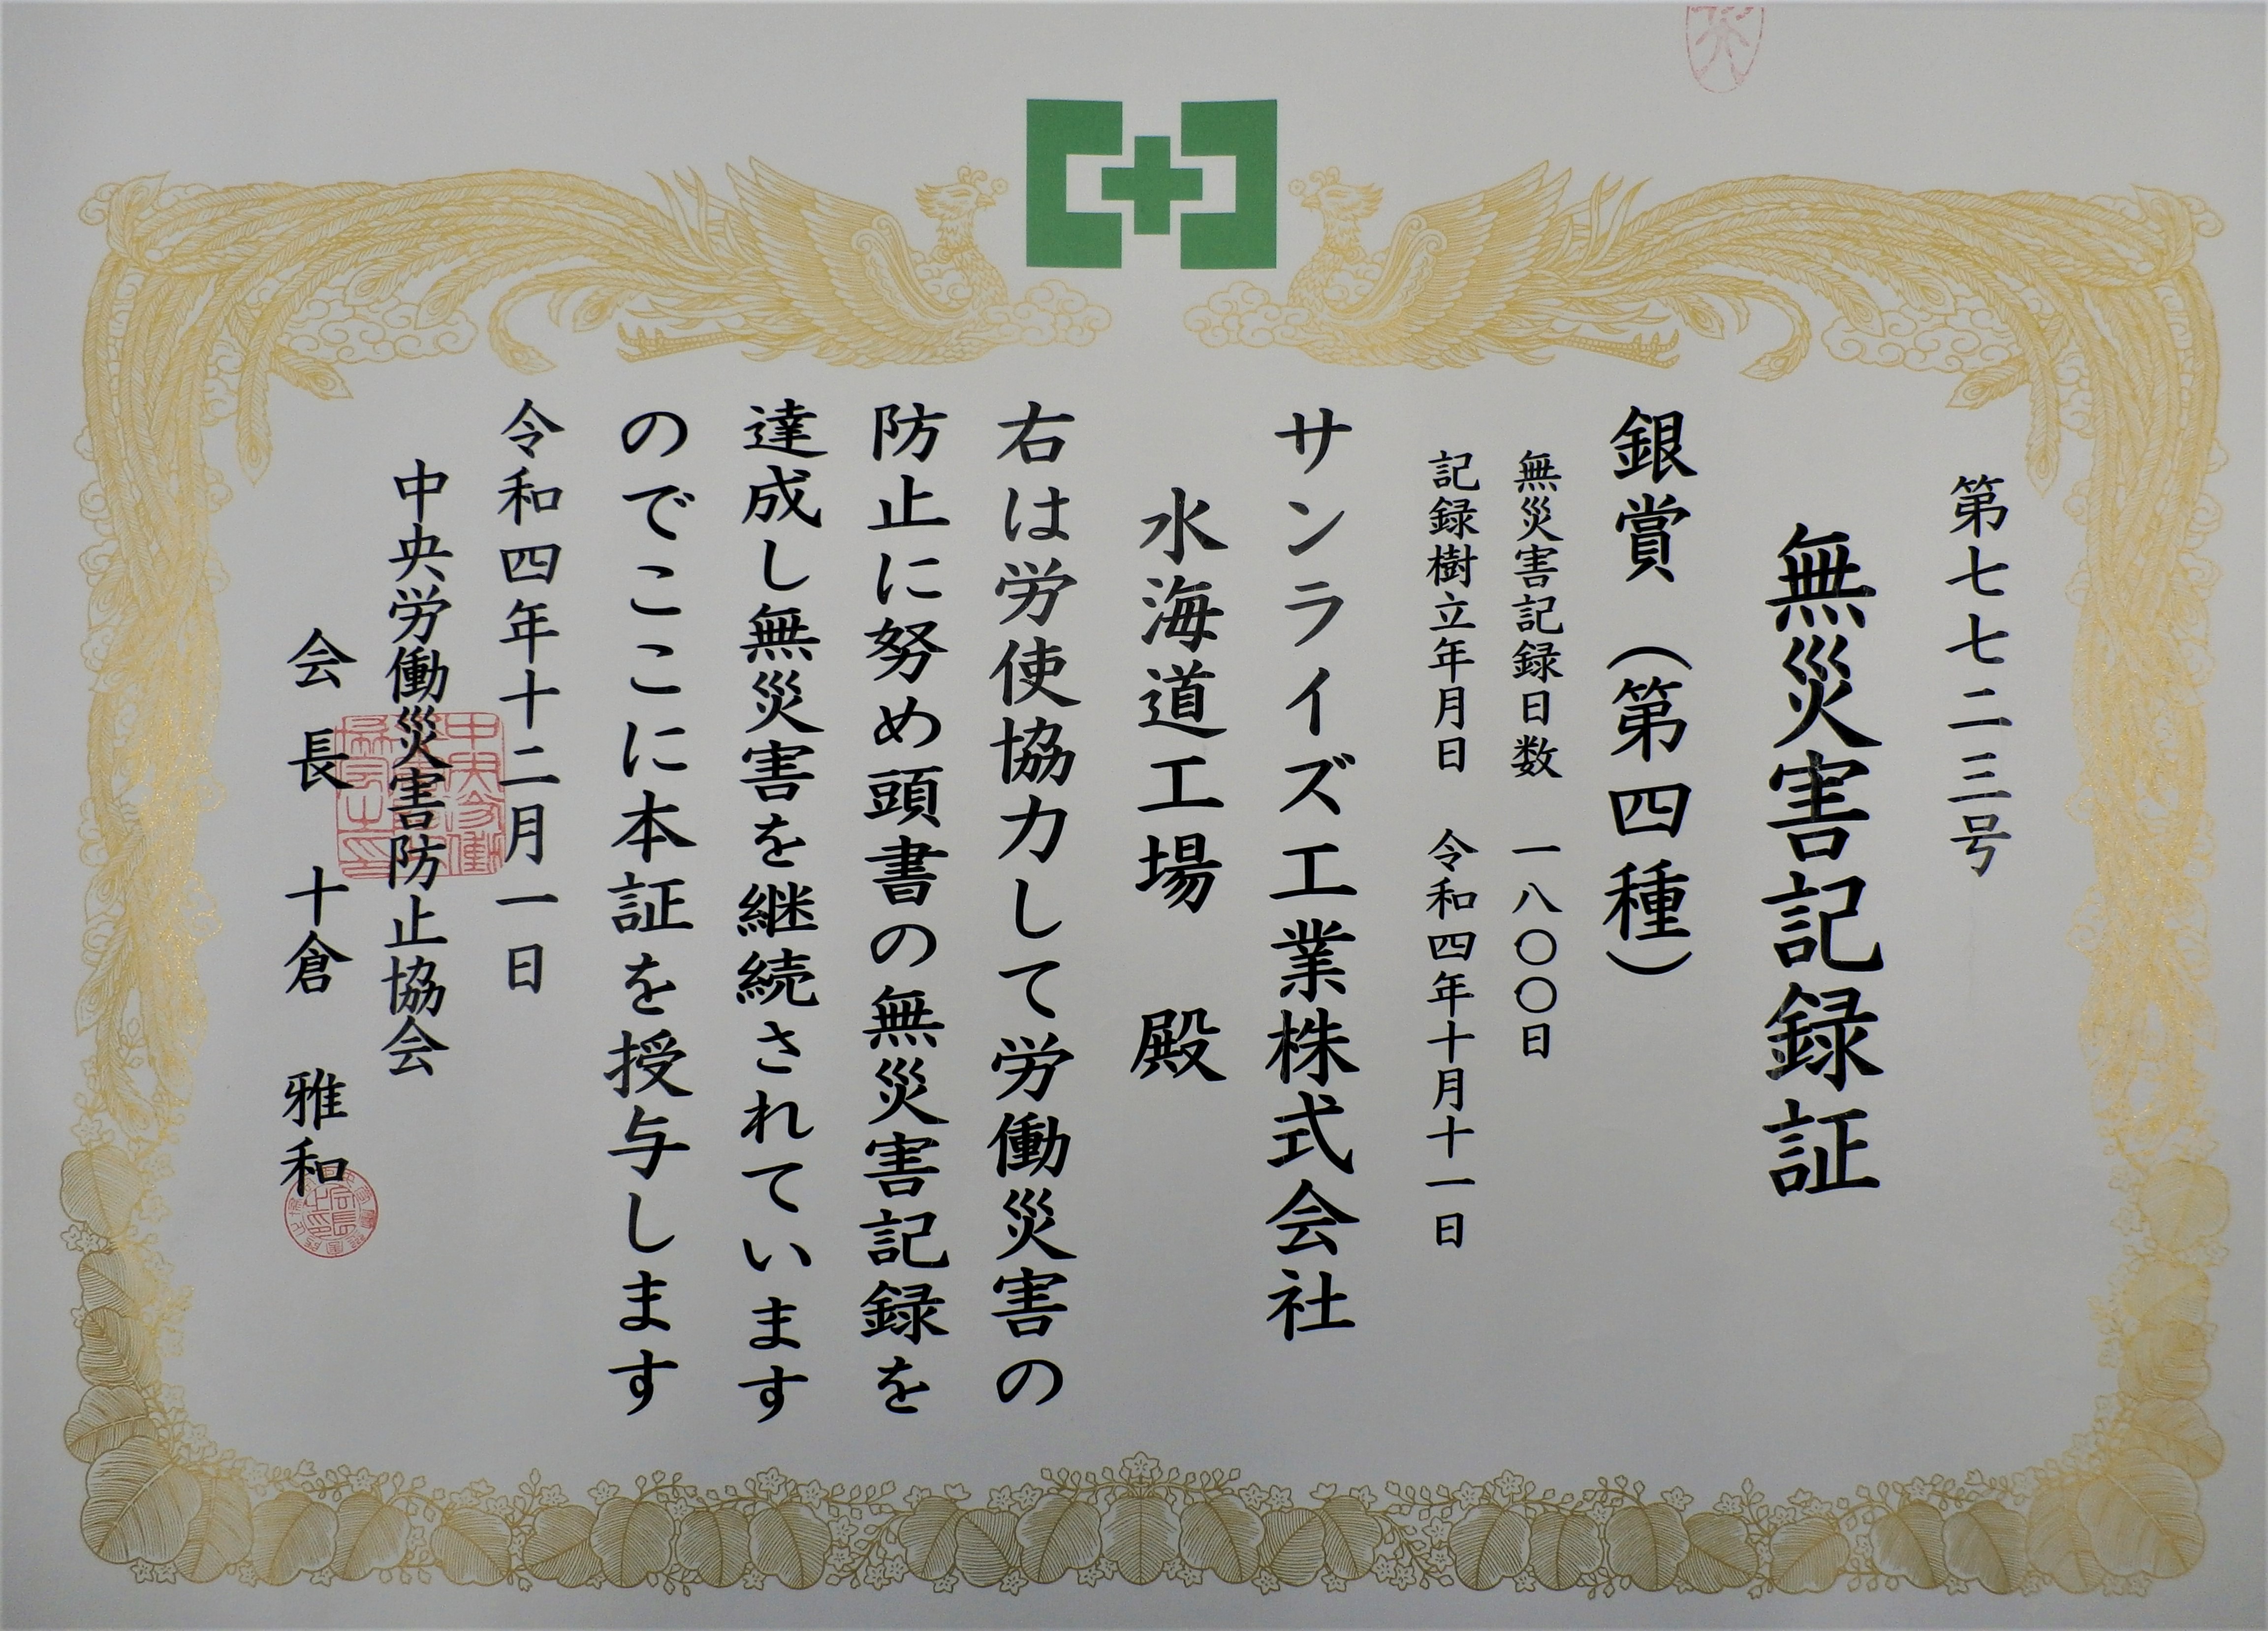 第七七二三号
無災害記録証
銀賞（第四種）
無災害記録日数 一八〇〇日
記録樹立年月日 令和四年十月十一日
サンライズ工業株式会社
水海道工場 殿
右は労使協力して労働災害の
防止に努め頭書の無災害記録を
達成し無災害を継続されています
のでここに本証を授与します
令和四年十二月一日
中央労働災害防止協会
会長 十倉 雅和